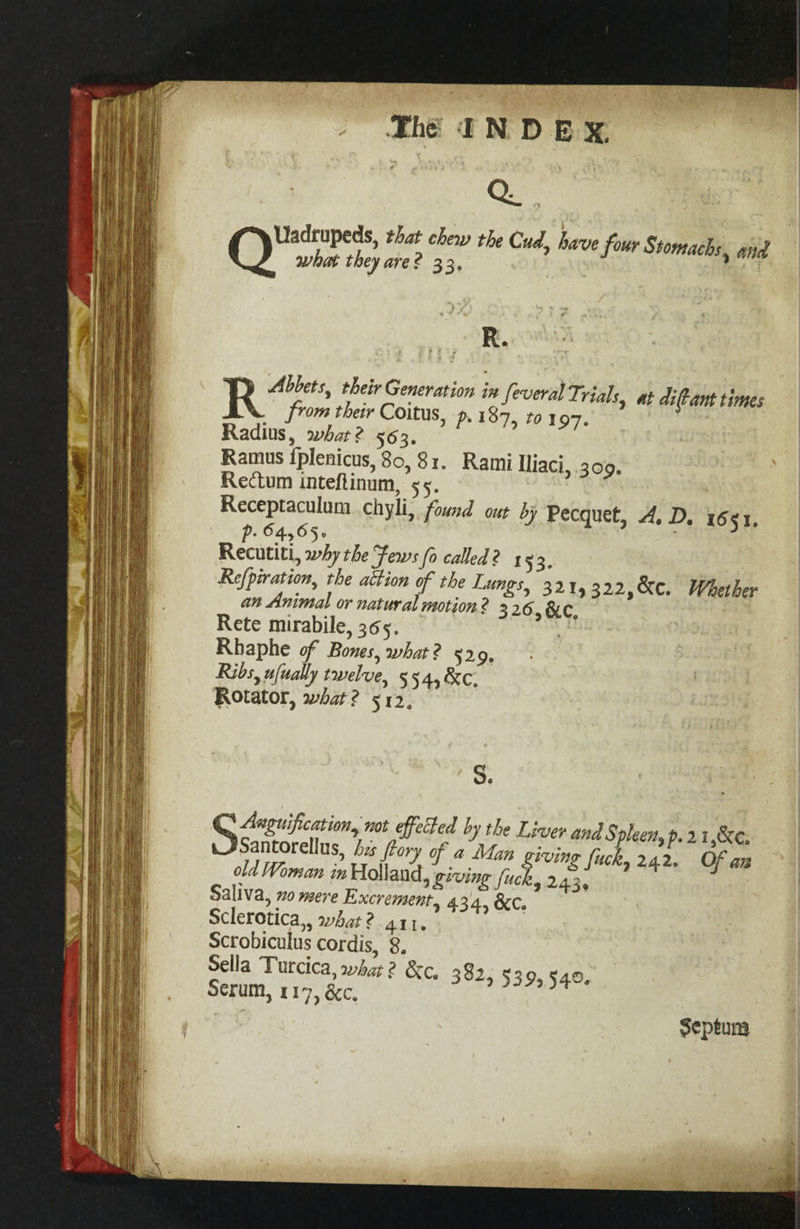 The INDEX.
Q.
QUadrupeds, that chew the Cud, have four Stomachs, and
what they are? 33.
R.
RAbbets, their Generation in ſeveral Trials, at diſtant times
from their Coitus, p. 187, to 197.
Radius, what? 563.
Ramus ſplenicus, 80, 81. Rami Iliaci, 309.
Rectum inteſtinum, 55.
Receptaculum chyli, found out by Pecquet, A. D. 1651.
p. 64, 65.
Recutiti, why the Jews ſo called? 153.
Reſpiration, the action of the Lungs, 321, 322, &c. Whether
an Animal or natural motion? 326, &c.
Rete mirabile, 365.
Rhaphe of Bones, what? 529.
Ribs, uſually twelve, 554, &c.
Rotator, what? 512.
S.
SAnguification, not effected by the Liver and Spleen, p. 21, &c.
Santorellus, his ſtory of a Man giving ſuck, 242. Of an
old Woman in Holland, giving ſuck, 243.
Saliva, no mere Excrement, 434, &c.
Sclerotica,, what? 411.
Scrobiculus cordis, 8.
Sella Turcica, what? &c. 382, 539, 540.
Serum, 117, &c.
Septum